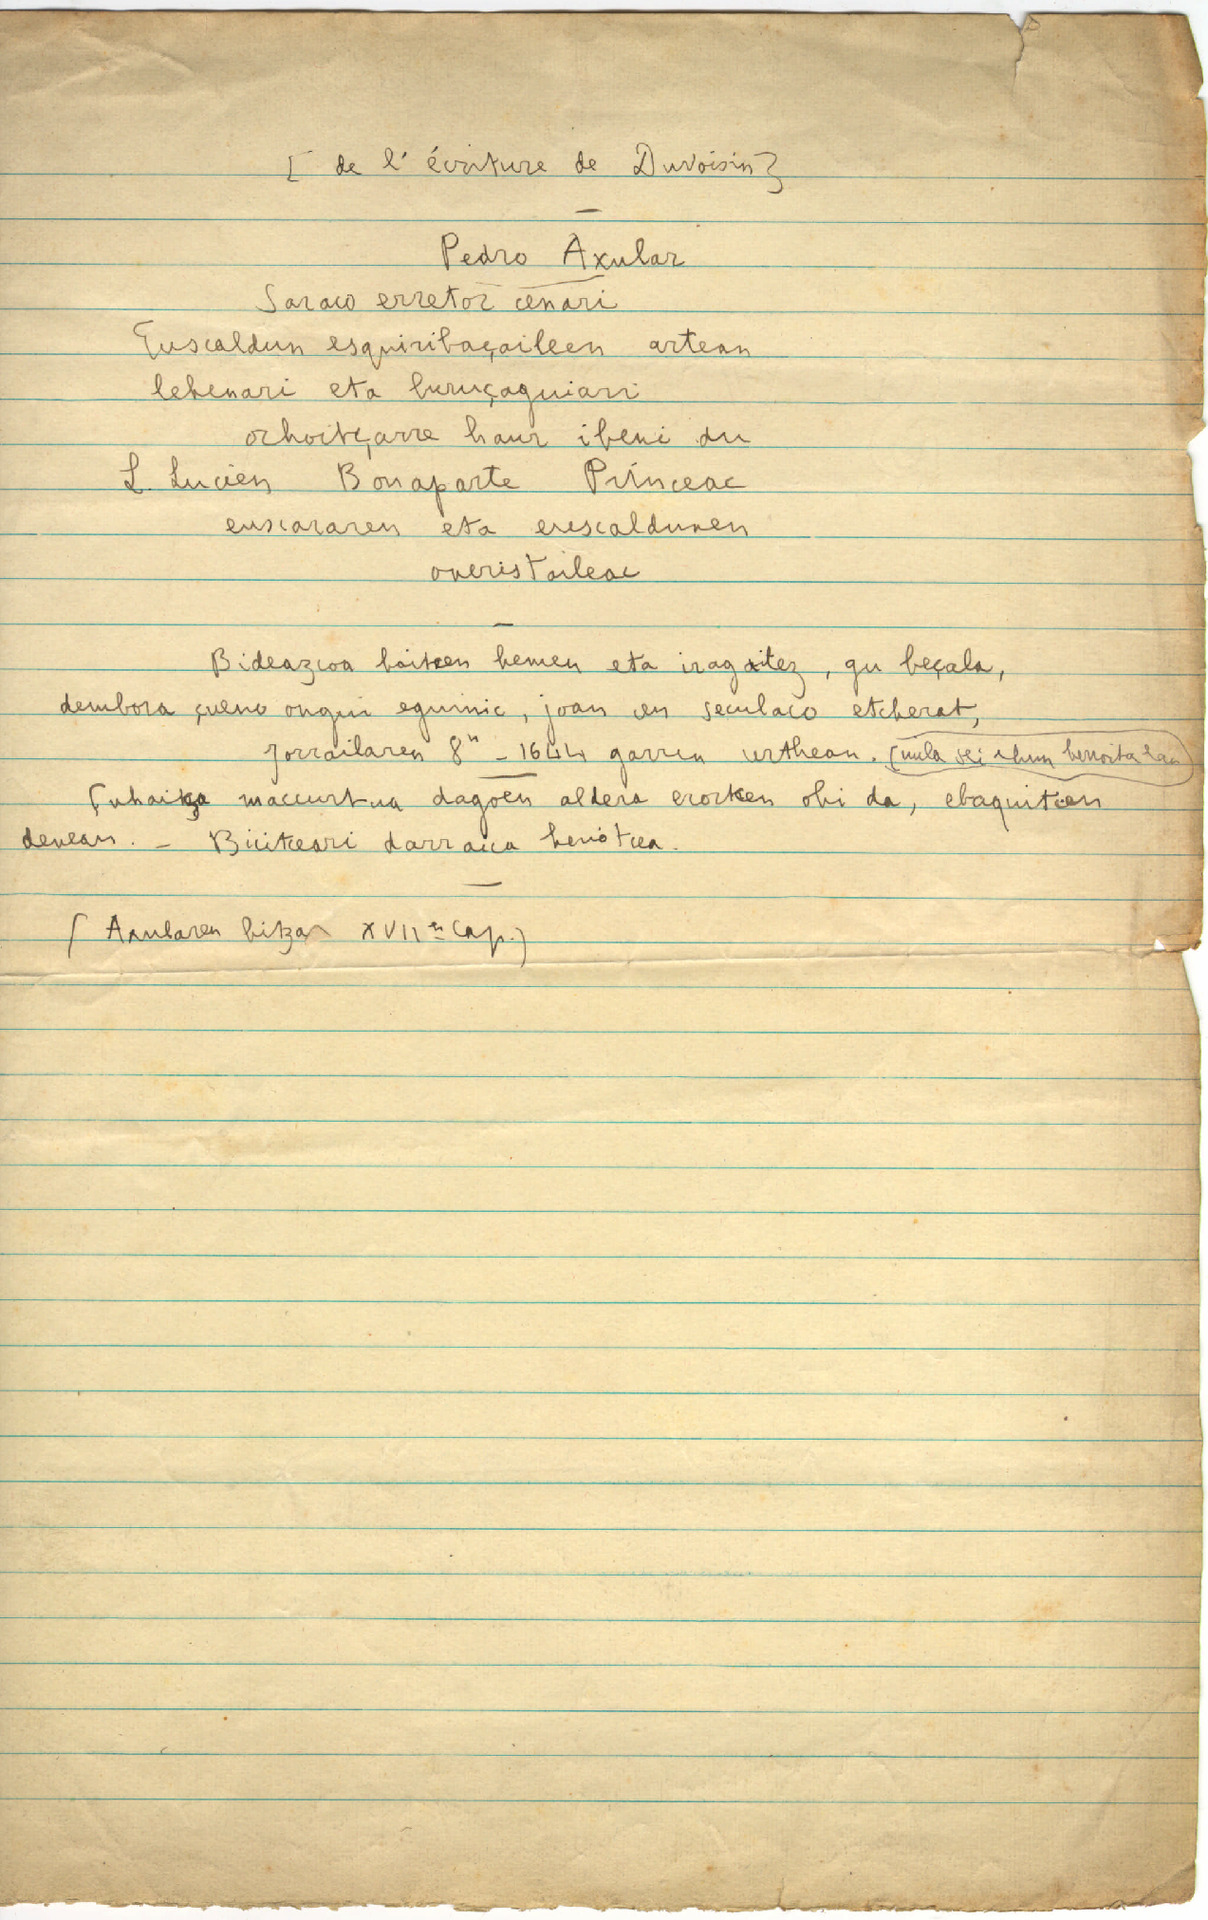 [ de l'écriture de Duvoisin ]
Pedro Axular
Saraco erretor cenari
Euscaldun esquiribaçaileen artean
lehenari eta buruçaguiari
orhoitçarre haur ibeni du
L. Lucien Bonaparte Princeac
euscararen eta euscaldunen
oneristaileac
Bideazcoa baitcen hemen eta iragaitez, gu beçala,
dembora çueno ongui eguinic, joan cen seculaco etcherat,
Jorrailaren 8n - 1644 garren urthean. (mila sei ehun berroita lau)
Çuhaitça maccurtua dagoen aldera erortcen ohi da, ebaquitcen
denean. - Bicitceari darraica heriotcea.
( Axularen hitza XVIIn Cap.)